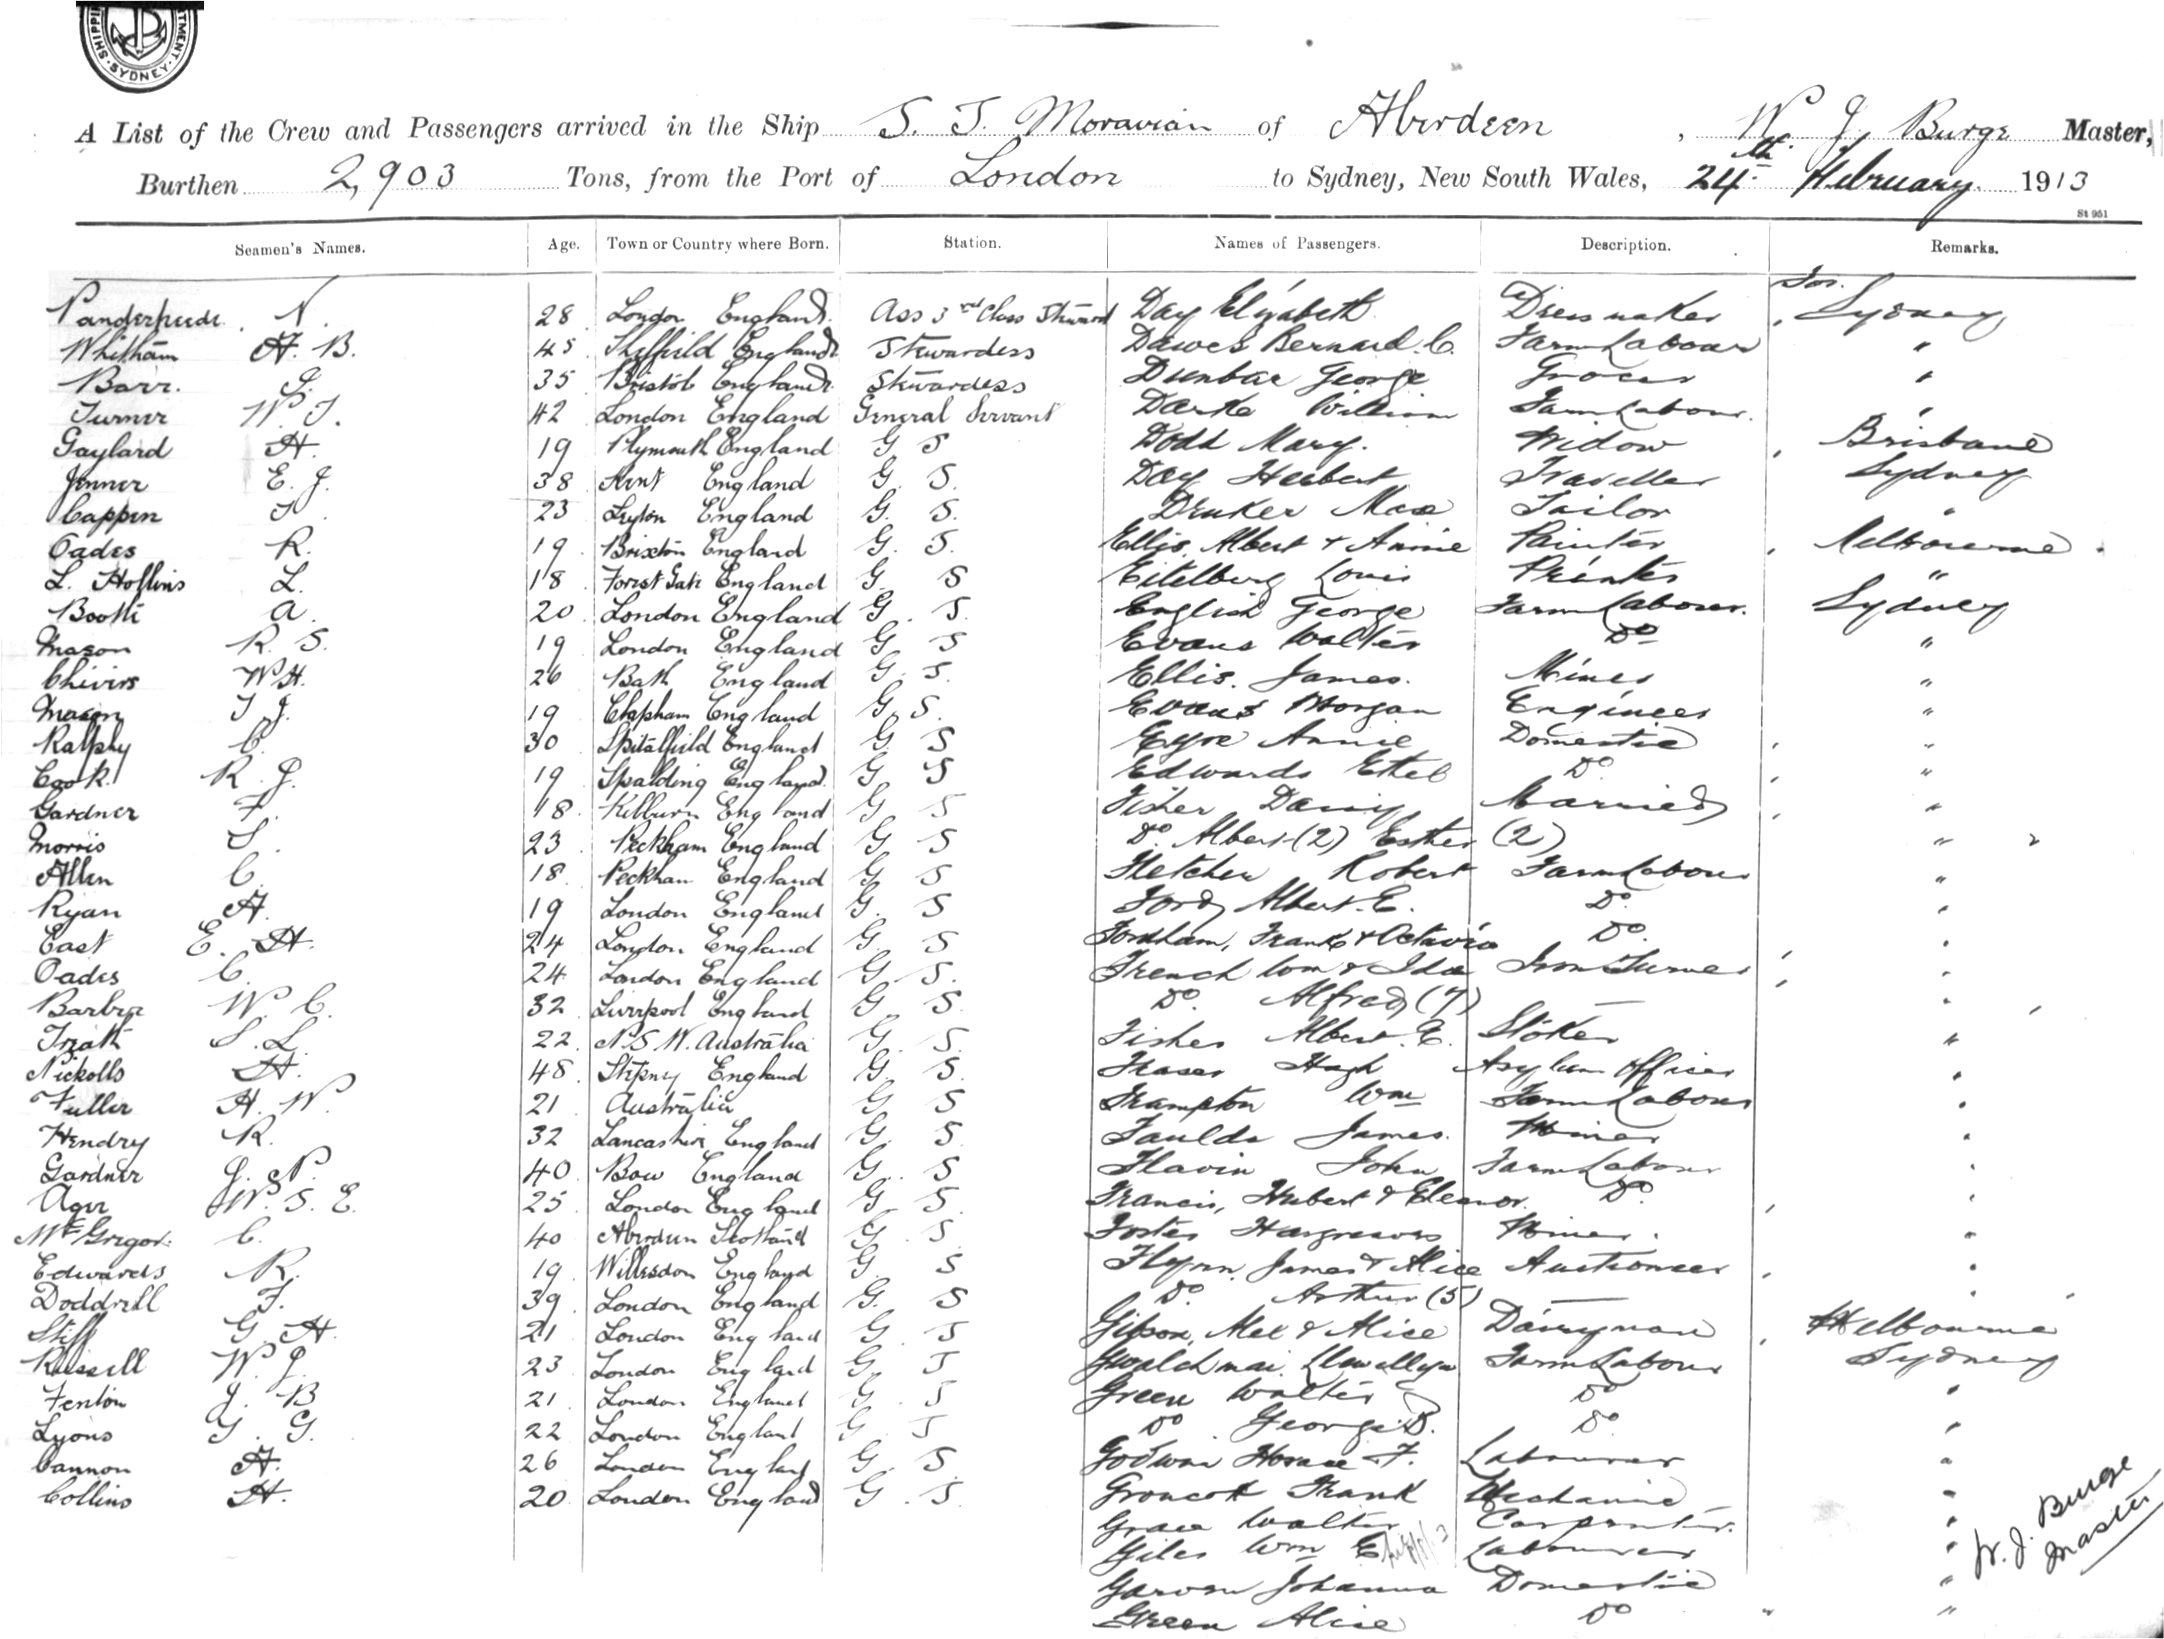 SHIPPING DEPARTMENT SYDNEY
A List of the Crew and Passengers arrived in the Ship S. T. Moravian of Aberdeen, Wm. J. Burge Master,
Burthen 2,903 Tons, from the Port of London to Sydney, New South Wales, 24th February 1913
St 951
Seamen's Names. Age. Town or Country where Born. Station. Names of Passengers. Description. Remarks.
For
Vanderpeede N. 28 London England Ass 3rd Class Steward Day Elizabeth Dressmaker Sydney
Whitham H. B. 45 Sheffield England Stewardess Dawes Bernard C. Farm Labour "
Barr. J. 35 Bristol England Stewardess Dunbar George Grocer "
Turner W. T. 42 London England General Servant Darke William Farm Labour. "
Gaylard H. 19 Plymouth England G S Dodd Mary. Widow Brisbane
Jenner E. J. 38 Kent England G. S. Day Herbert Traveller Sydney
Cappen J. 23 Leyton England G. S. Druker Max Tailor "
Oades R. 19 Brixton England G. S. Ellis, Albert & Annie Painter Melbourne
L. Hollins L. 18 Forest Gate England G. S Eitelberg Louis Printer "
Booth A. 20 London England G. S. English George Farm Labour. Sydney
Mason R. S. 19 London England G S Evans Walter Do "
Chivers W H. 26 Bath England G. S. Ellis. James. Miner "
Mason J J. 19 Clapham England G. S. Evans Morgan Engineer "
Ralphy C. 30 Spitalfield England G S Eyre Annie Domestic "
Cook R. J. 19 Spalding England G S Edwards Ethel Do "
Gardner F. 18 Kilburn England G S Fisher Daisy Married "
Morris S. 23 Peckham England G S Do Albert (2) Esther (2) "
Allen C. 18 Peckham England G S Fletcher Robert Farm Labour "
Ryan H. 19 London England G. S Ford Albert E. Do "
East E. H. 24 London England G. S Fordham, Frank & Octavia Do. "
Oades C. 24 London England G S. French Wm & Ida Iron Turner "
Barber W. C. 32 Liverpool England G S. Do. Alfred (7) — "
Treath S. L. 22 N. S. W. Australia G. S. Fisher Albert E. Stoker "
Nickolls H. 48 Stepney England G. S. Fraser Hugh Asylum Officer "
Fuller H. W. 21 Australia G S Frampton Wm Farm Labour "
Hendry R. 32 Lancashire England G. S Faulds James. Miner "
Gardner J. N. 40 Bow England G. S Flavin John Farm Labour "
Ager W. S. E. 25 London England G S Francis, Hubert & Eleanor. Do. "
McGregor C. 40 Aberdeen Scotland G. S. Foster Hargreaves Miner. "
Edwards R. 19 Willesdon England G. S Flynn, James & Alice Auctioneer "
Doddrell F. 39 London England G. S Do. Arthur (5) — "
Stiff G. H. 21 London England G. S Gibson, Alex & Alice Dairyman Melbourne
Russell W. J. 23 London England G. S Gwalchmai Llewellyn Farm Labour Sydney
Fenton J. B 21 London England G. S Green Walter Do "
Lyons G. G. 22 London England G S Do George D. Do "
Cannon H. 26 London England G. S. Godwin Horace F. Labourer "
Collins H. 20 London England G. S. Groncott Frank Mechanic "
Grace Walter Carpenter. "
Giles Wm E Labourer "
Garvan Johanna Domestic "
Green Alice Do " "
W. J. Burge
Master